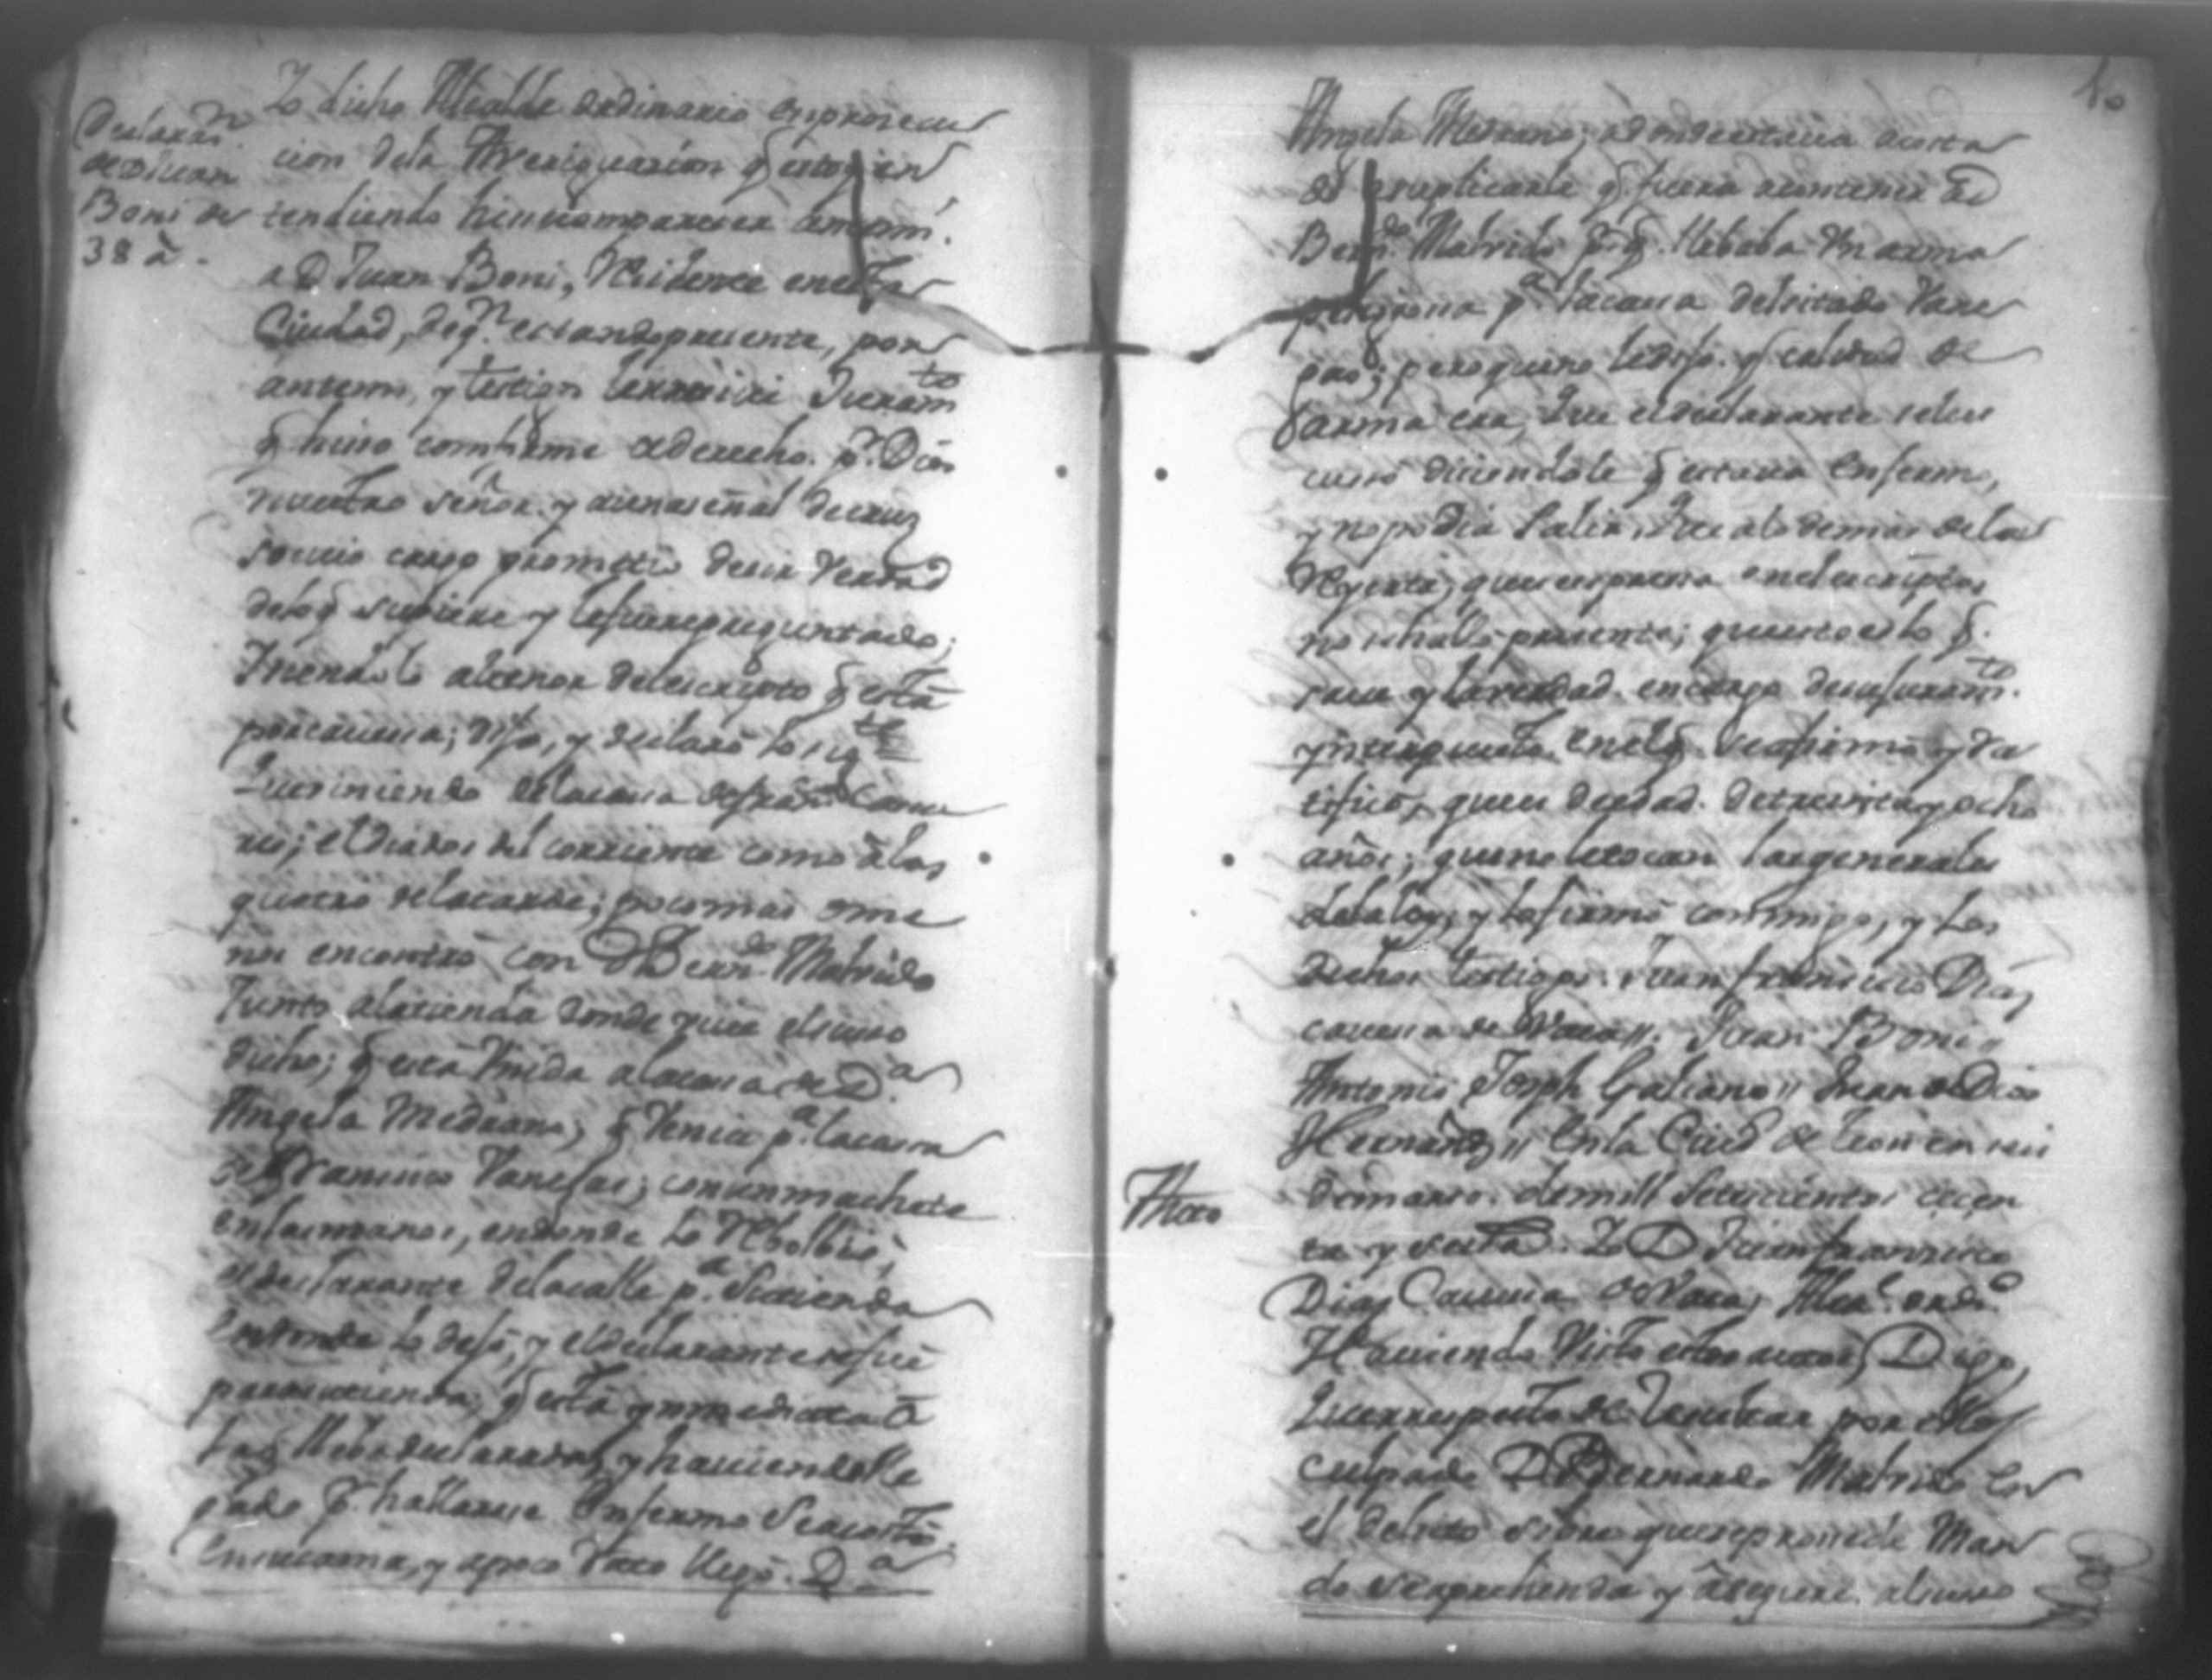 Declaras.n
de D Juan
Boni de
38 a.
Yo dicho Alcalde ordinario en prosecu
cion dela Averiguacion q estoy en
tendiendo hise comparecer ante mi.
a D Juan Boni, Residente en esta
Ciudad, de q.n estando presente, por
ante mi, y testigos le rreciví Juram.to
q hiso comforme a derecho. p.r Dios
nuestro señor. y a una señal de cruz
so cuio cargo prometio decir Verdad
delo q supiere y le fuere preguntado;
Y siendolo al tenor del escripto q está
por cavesa; dijo, y declaró lo sig.te
Que viniendo de la casa de Fran.co
el dia dos del corriente como á las
quatro de la tarde; poco mas o me
nos encontró con D Bern.do Matrido
Junto a la tienda donde vive el suso
dicho; q está Vnida a la casa de D.a
Angela Medrano; q Venia p.a la casa
de Francisco Vanegas; con un machete
en las manos, en donde lo Rbolbió;
el declarante de la calle p.a su tienda
en donde lo dejó, y el declarante se fue
para su tienda; q está ynmediata á
la q lleba declarada, y haviendo lle
gado p.r hallarse Enfermo se acostó.
en su cama, y a poco rato llegó. D.a
10
Angela Medrano; a donde estava acosta
do a suplicarle q. fuera a contener a D
Bern.do Matrido p.r q. llebaba Vn arma
p.a la casa del citado Vane
gas; pero que no le dijo. q calidad de
arma era, Que el declarante se les
cusó diciendole q estava Enfermo,
y no podia salir, Que a lo demas de la
Reyerta; que se expresa en el escripto,
no se halló presente; que esto es lo q.
save y la verdad. en cargo de su juram.to
en el q. se afirmó y Ra
tificó, que es de edad. de treinta y ocho
años; que no le tocan las generales
de la ley; y lo firmó conmigo, y los
dichos testigos. Juan francisco Diaz
cavesa de Vaca//. Juan Boni//
Antonio Joseph Galiano// Juan de Dios
Hernandz// En la Ciud de Leon en seis
Auto
de marzo. de mill setecientos
ta y Yo D Juan francisco
Diaz Cavesa de Vaca; Alca.e ordi.o
Haviendo Visto estos autos, Digo,
Que rrespecto de rresultar por ellos
culpado D Bernardo Matrido en
el delito sobre que se procede Man
do se aprehenda y asegure. al suso